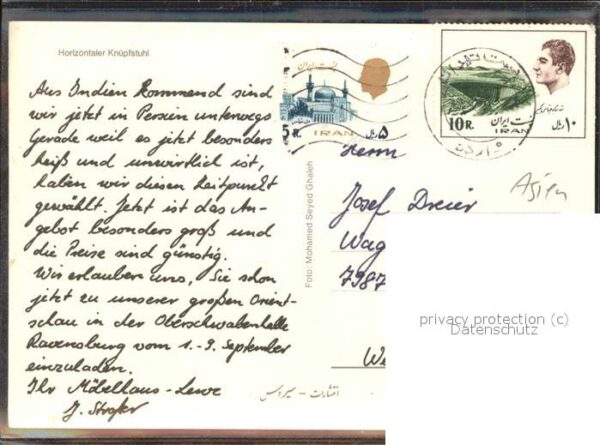 Horizontaler Knüpfstuhl
Aus Indien kommend sind
wir jetzt in Persien unterwegs
Gerade weil es jetzt besonders
heiß und unwirtlich ist,
haben wir diesen Zeitpunkt
gewählt. Jetzt ist das An-
gebot besonders groß und
die Preise sind günstig.
Wir erlauben uns, Sie schon
jetzt zu unserer großen Orient-
schau in der Oberschwabenhalle
Ravensburg vom 1.-9. September
einzuladen.
Ihr Möbelhaus-
J.
Foto: Mohamed Seyed Ghaleh
پست ایران
5 R. IRAN ۵ ریال
پست ایران
10 R. IRAN ۱۰ ریال
Herrn
Josef Dreier
Wag
7987
We
Asien
privacy protection (c)
Datenschutz
انتشارات -